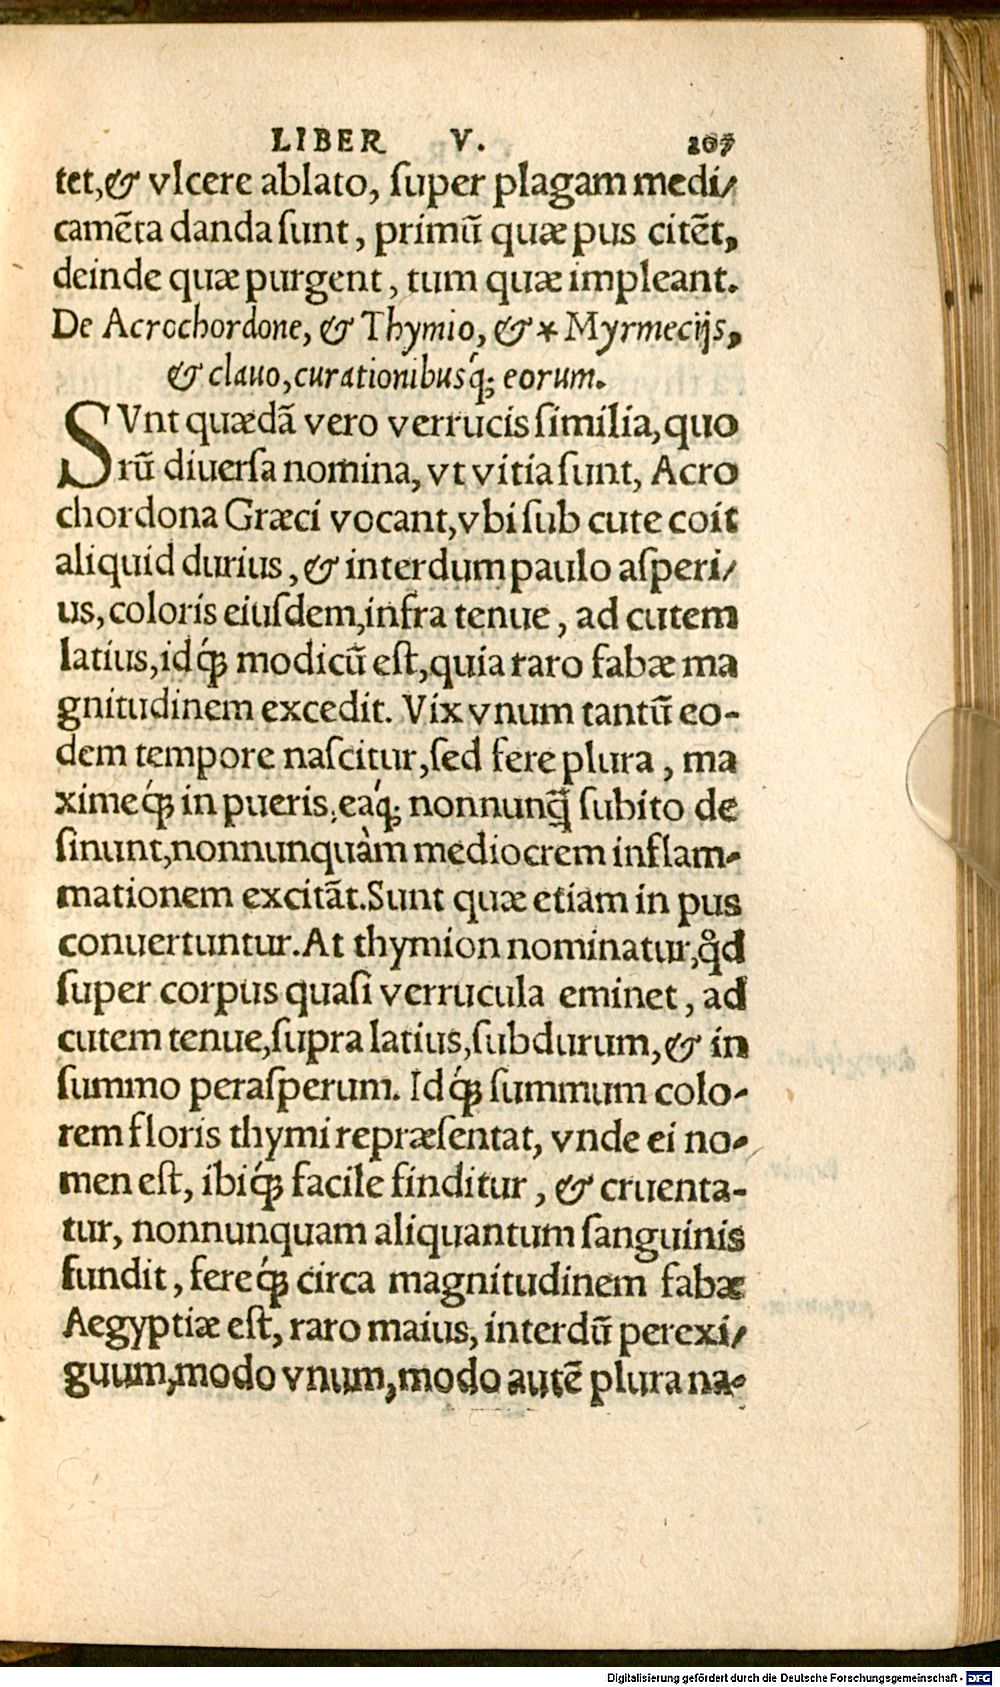 LIBER V. 207
tet,& vlcere ablato, ſuper plagam medi/
camēta danda ſunt, primū quæ pus citēt,
deinde quæ purgent, tum quæ impleant.
De Acrochordone, & Thymio, & * Myrmecijs,
& clauo, curationibusq́; eorum.
SVnt quædā vero verrucis ſimilia, quo
rū diuerſa nomina, vt vitia ſunt, Acro
chordona Græci vocant, vbi ſub cute coit
aliquid durius, & interdum paulo aſperi/
us, coloris eiuſdem, infra tenue, ad cutem
latius, idq́; modicū eſt, quia raro fabæ ma
gnitudinem excedit. Vix vnum tantū eo-
dem tempore naſcitur, ſed fere plura, ma
ximeq́; in pueris, eaq́; nonnunq̃ ſubito de
ſinunt, nonnunquàm mediocrem inflam-
mationem excitāt. Sunt quæ etiam in pus
conuertuntur. At thymion nominatur, qd̊
ſuper corpus quaſi verrucula eminet, ad
cutem tenue, ſupra latius, ſubdurum, & in
ſummo peraſperum. Idq́; ſummum colo-
rem floris thymi repræſentat, vnde ei no-
men eſt, ibiq́; facile finditur, & cruenta-
tur, nonnunquam aliquantum ſanguinis
fundit, fereq́; circa magnitudinem fabæ
Aegyptiæ eſt, raro maius, interdū perexi/
guum, modo vnum, modo autē plura na-
Digitalisierung gefördert durch die Deutsche Forschungsgemeinschaft - DFG